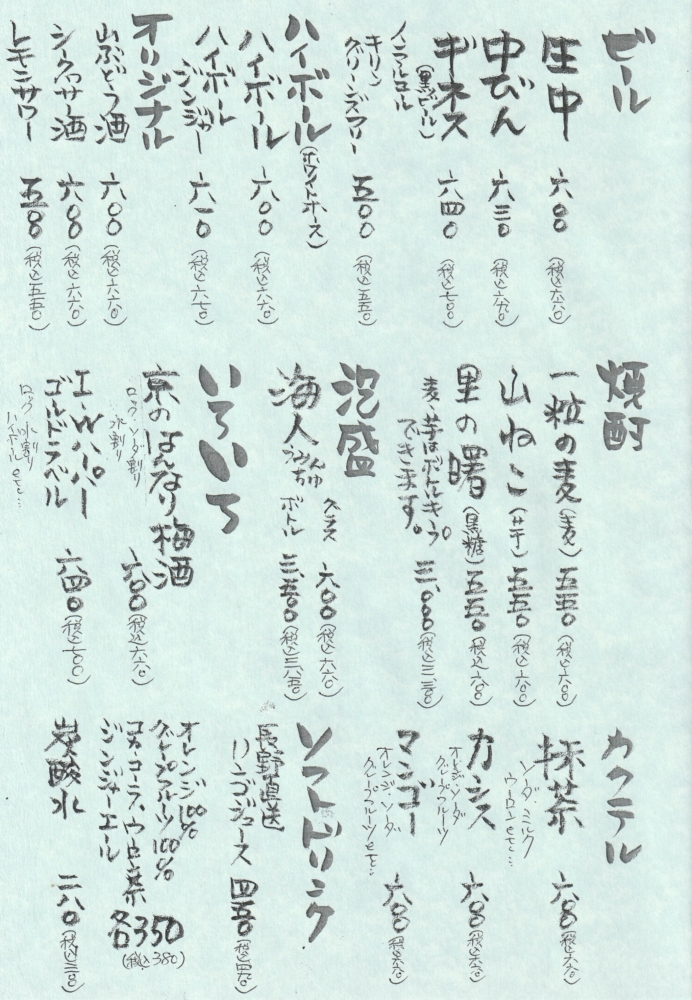 ビール
生中 六〇〇 (税込六六〇)
中びん 六三〇 (税込六九〇)
ギネス (黒ビール) 六四〇 (税込七〇〇)
ノンアルコール
キリン
グリーンズフリー 五〇〇 (税込五五〇)
ハイボール (ホワイトホース)
ハイボール 六〇〇 (税込六六〇)
ハイボール
ジンジャー 六一〇 (税込六七〇)
オリジナル
山ぶどう酒 六〇〇 (税込六六〇)
シークヮサー酒 六〇〇 (税込六六〇)
レモンサワー 五〇〇 (税込五五〇)
焼酎
一粒の麦 (麦) 五五〇 (税込六〇〇)
山ねこ (芋) 五五〇 (税込六〇〇)
里の曙 (黒糖) 五五〇 (税込六〇〇)
麦、芋はボトルキープ
できます。 三、〇〇〇 (税込三、三〇〇)
泡盛
海人 うみんちゅ グラス 六〇〇 (税込六六〇)
ボトル 三、五〇〇 (税込三、八五〇)
いろいろ
京のはんなり梅酒 六〇〇 (税込六六〇)
ロック、ソーダ割り
水割り
I・Wハーパー
ゴールドラベル 六四〇 (税込七〇〇)
ロック 水割り
ハイボール etc…
カクテル
抹茶 六〇〇 (税込六六〇)
ソーダ・ミルク
ウーロン etc…
カシス 六〇〇 (税込六六〇)
オレンジ・ソーダ
グレープフルーツ
マンゴー 六〇〇 (税込六六〇)
オレンジ・ソーダ
グレープフルーツ etc…
ソフトドリンク
長野直送
リンゴジュース 四五〇 (税込四九〇)
オレンジ100%
グレープフルーツ100%
コカ・コーラ、ウーロン茶
ジンジャーエール 各350
(税込380)
炭酸水 二八〇 (税込三〇〇)